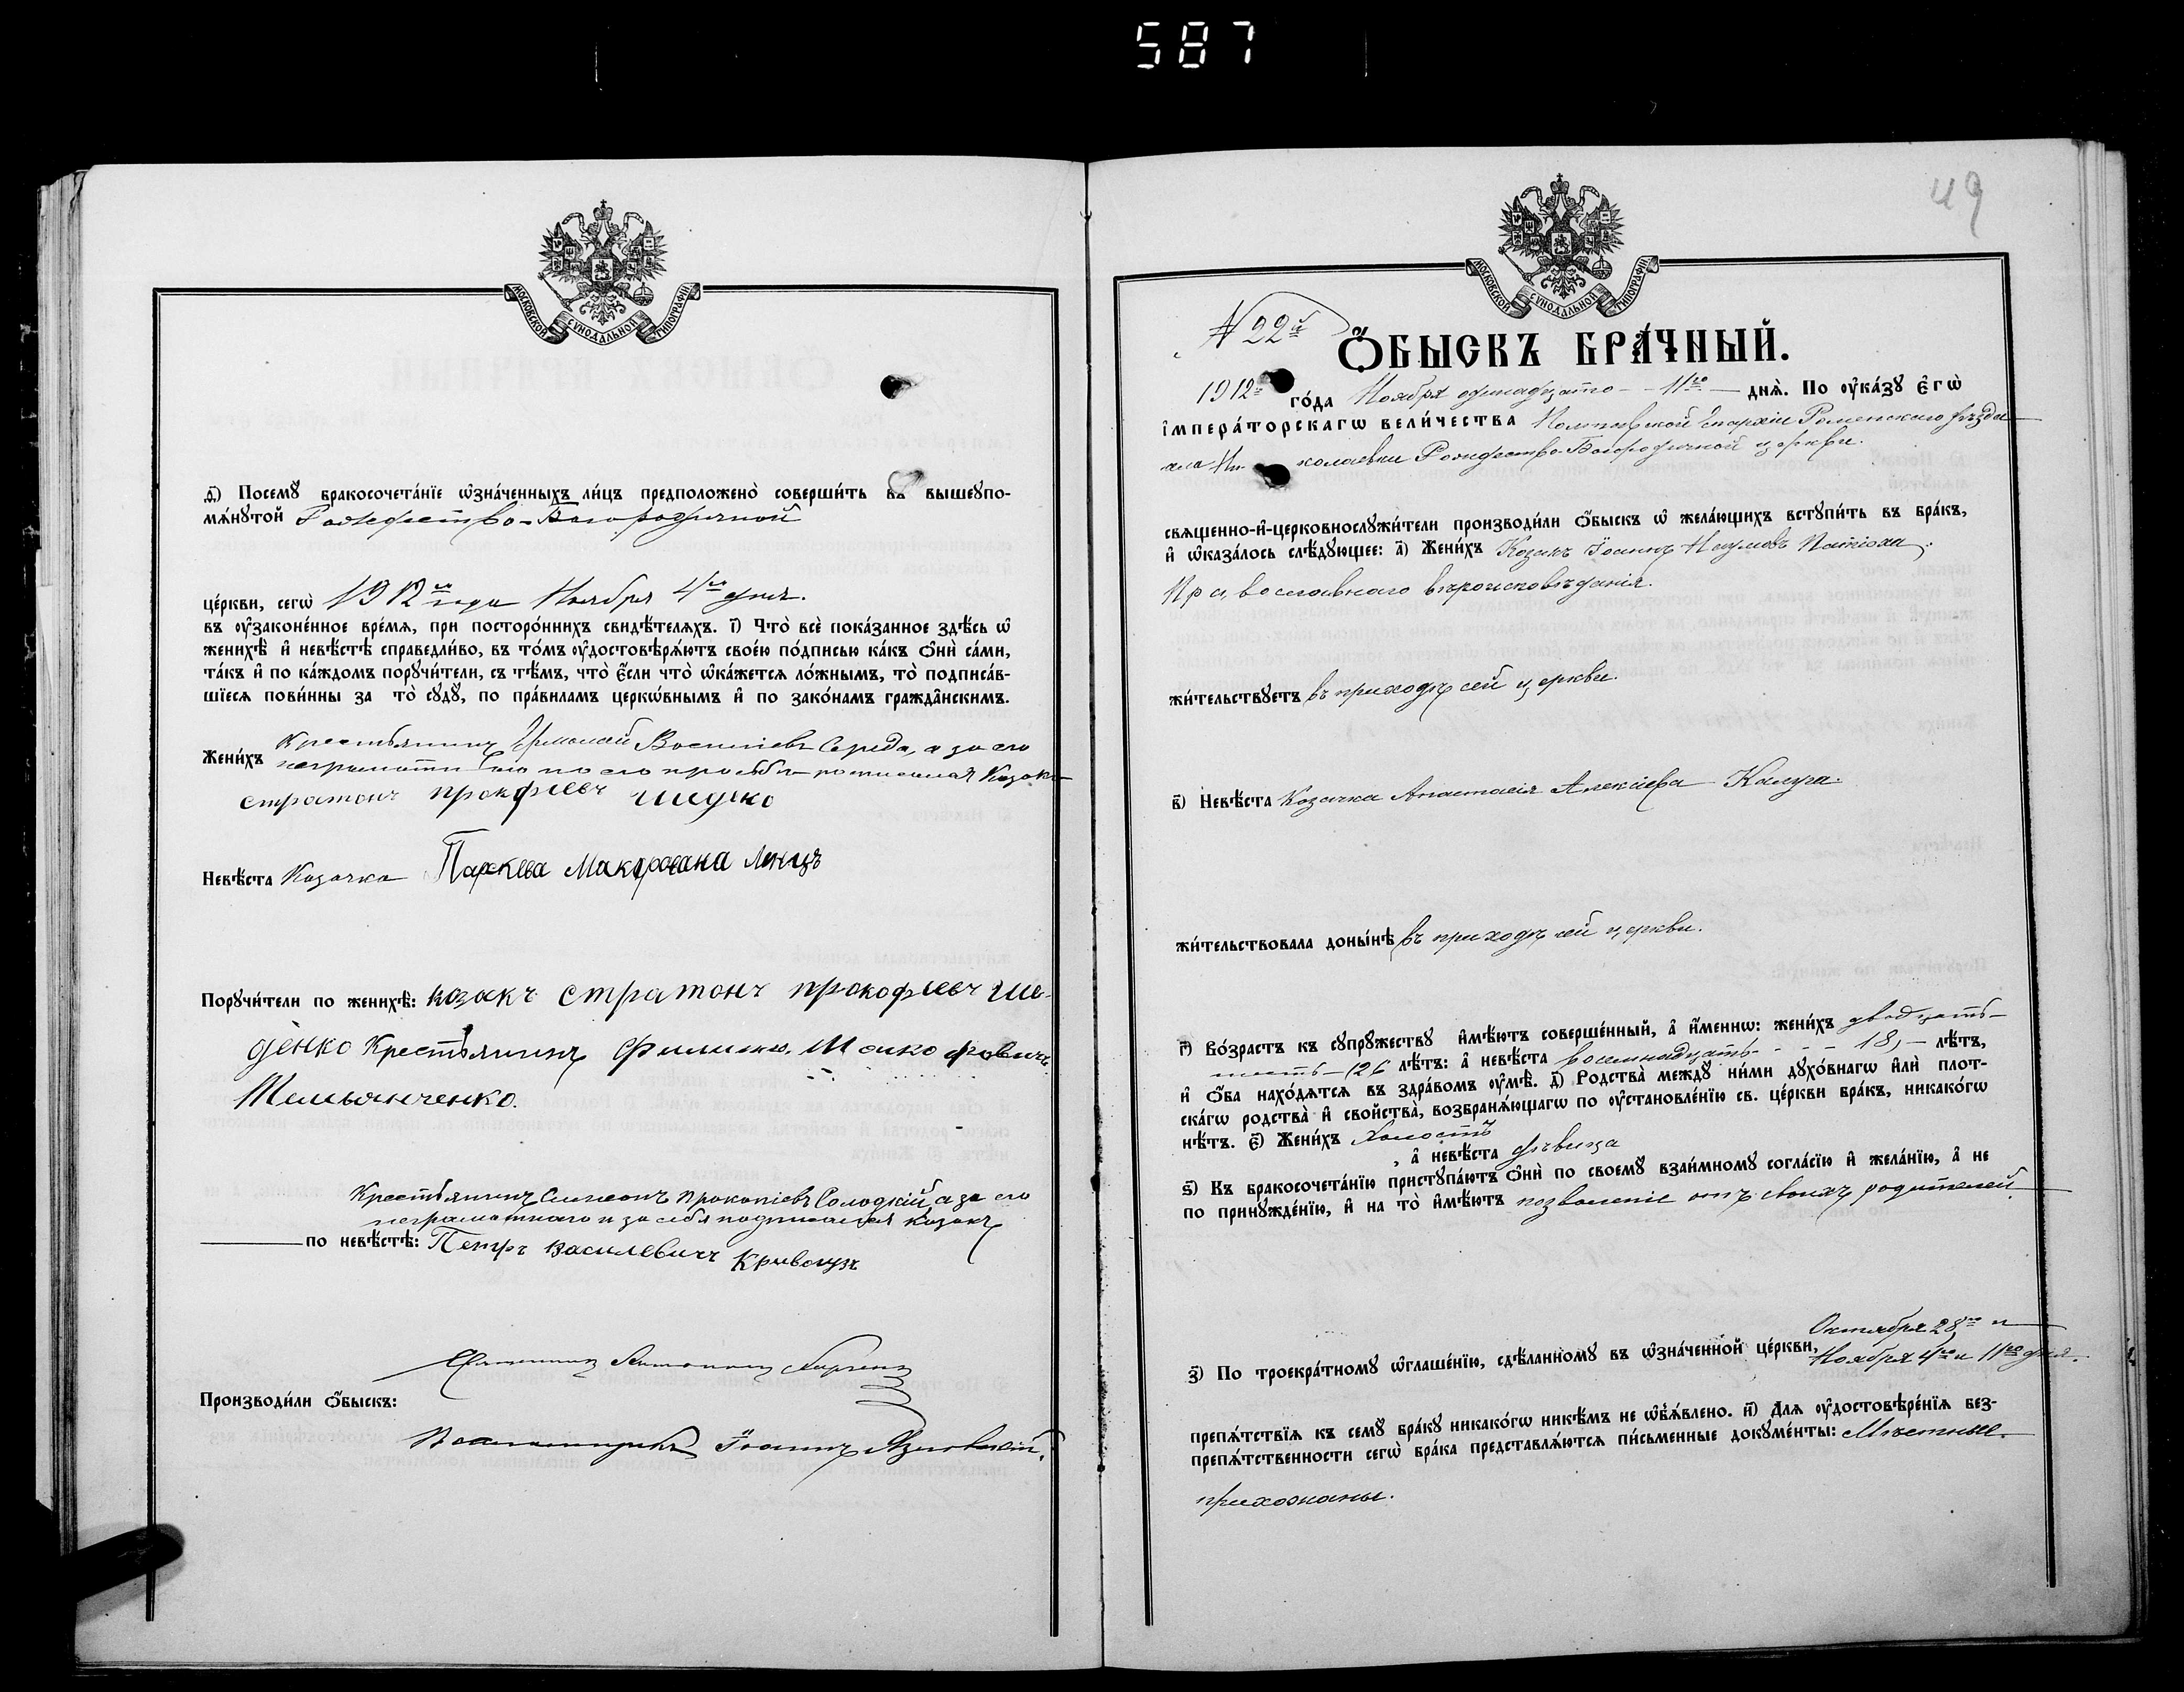 587
МОСКОВСКОЙ СУНОДАЛЬНОЙ ТИПОГРАФІИ
ѳ҃) Посемꙋ̀ бракосочета́нїе ѡ҆зна́ченныхъ ли́цъ предположено̀ соверши́ть въ вышеꙋпо-
мѧ́нꙋтой Рождество-Богородичной
це́ркви, сегѡ̀ 1912го года Ноября 4го дня.
въ ᲂу҆законе́нное вре́мѧ, при посторо́ннихъ свидѣ́телѧхъ. і҃) Что̀ всѐ пока́занное здѣ́сь ѡ҆
женихѣ̀ и҆ невѣ́стѣ справедли́во, въ то́мъ ᲂу҆достовѣрѧ́ютъ свое́ю по́дписью ка́къ ѻ҆нѝ са́ми,
та́къ и҆ по ка́ждомъ порꙋчи́тели, съ тѣ́мъ, что̀ є҆́сли что̀ ѡ҆ка́жетсѧ ло́жнымъ, то̀ подписа́в-
шїесѧ пови́нны за то̀ сꙋдꙋ̀, по пра́виламъ церкѡ́внымъ и҆ по зако́намъ гражда̂нскимъ.
Жени́хъ Крестьянинъ Ермолай Василіевъ Середа, а за его
неграмотн его по его прозьбѣ росписался Казакъ
стратонъ прокофіевъ
Невѣ́ста Козачка Параскева Макарована
Порꙋчи́тели по женихѣ̀: козакъ стратонъ прокофіевъ ше-
денко Крестьянинъ Филиппъ
Емельянченко.
Крестьянинъ Симеонъ Прокопіевъ Солодкій, а за его
неграмотнаго и за себя подписался козакъ
по невѣ́стѣ: Петръ василевичъ Кривогузъ
Священникъ
Производи́ли ѻ҆́быскъ:
Псаломщикъ Іоаннъ
49
МОСКОВСКОЙ СУНОДАЛЬНОЙ ТИПОГРАФІИ
N 22й
Ѻ҆́БЫСКЪ БРА́ЧНЫЙ.
1912го го́да Ноября одинадцато - 11го днѧ̀. По ᲂу҆ка́зꙋ є҆гѡ̀
і҆мпера́торскагѡ вели́чества Полтавской Епархіи Роменскаго уѣзда
села Ни колаевки Рождество-Богородичной церкви.
свѧщенно-и҆-церковнослꙋжи́тели производи́ли ѻ҆́быскъ ѡ҆ жела́ющихъ встꙋпи́ть въ бра́къ,
и҆ ѡ҆каза́лось слѣ́дꙋющее: а҃) Жени́хъ Козакъ Іоаннъ Наумовъ Патіоха.
Православнаго вѣроисповѣданія.
жи́тельствꙋетъ въ приходѣ сей церкви.
в҃) Невѣ́ста Козачка Анастасія Алексіева Калуга.
жи́тельствовала доны́нѣ въ приходѣ сей церкви.
г҃) Во́зрастъ къ сꙋпрꙋ́жествꙋ и҆мѣ́ютъ соверше́нный, а҆ и҆́меннѡ: жени́хъ двадцать-
шесть - (26 лѣ́тъ: а҆ невѣ́ста восемнадцать - - - 18, - лѣ́тъ,
и҆ ѻ҆́ба нахо́дѧтсѧ въ здра́вомъ ᲂу҆мѣ̀. д҃) Родства̀ междꙋ̀ ни́ми дꙋхо́внагѡ и҆лѝ плот-
ска́гѡ родства̀ и҆ сво́йства̀, возбранѧ́ющагѡ по ᲂу҆становле́нїю св. це́ркви бра́къ, никако́гѡ
нѣ́тъ. є҃) Жени́хъ холостъ
, а҆ невѣ́ста дѣвица
ѕ҃) Къ бракосочета́нїю пристꙋпа́ютъ ѻ҆нѝ по своемꙋ̀ взаи́мномꙋ согла́сїю и҆ жела́нїю, а҆ не
по принꙋжде́нїю, и҆ на то̀ и҆мѣ́ютъ позволеніе отъ своихъ родителей.
Октября 28го и
з҃) По троекра́тномꙋ ѡ҆глаше́нїю, сдѣ́ланномꙋ въ ѡ҆зна́ченной це́ркви, Ноября 4го и 11го дня.
препѧ́тствїѧ къ семꙋ̀ бра́кꙋ никако́гѡ никѣ́мъ не ѡ҆б̾ѧ́влено. и҃) Длѧ ᲂу҆достовѣре́нїѧ без-
препѧ́тственности сегѡ̀ бра́ка представлѧ́ютсѧ пи́сьменные докꙋме́нты: Мѣстные
прихожаны.